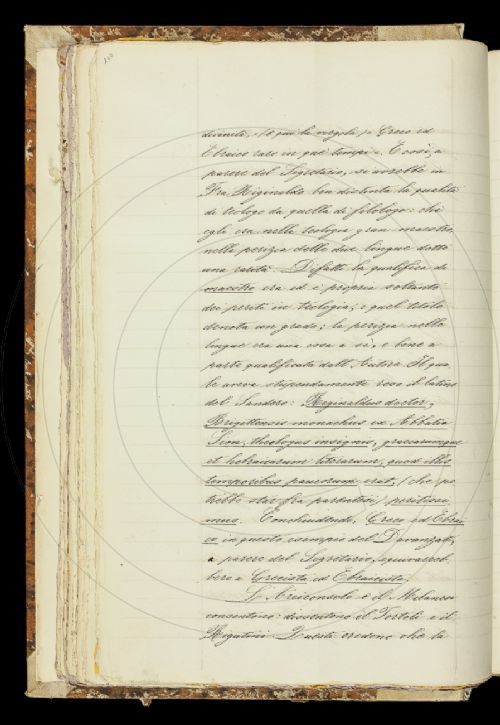 divinità, e (o qui la virgola) Greco ed
Ebraico raro in que' tempi". E così, a
parere del Segretario, si avrebbe in
Fra Riginaldo ben distinta la qualità
di teologo da quella di filologo: chè
egli era nella teologia gran maestro,
nella perizia delle due lingue dotte
una rarità. Difatti la qualifica di
maestro era ed è propria soltanto
dei periti in teologia; e quel titolo
denota un grado; la perizia nelle
lingue era una cosa a sè, e bene a
parte qualificata dall'Autore. Il qua
le aveva stupendamente reso il latino
del Sandero: Reginaldus doctor,
Brigittensis monachus ex Abbatia
Sion, theologus insignis, graecarumque
et hebraicarum literarum, quod illis
temporibus paucorum erat, (che po
trebbe star fra parentesi) peritissi
mus. Conchiudendo, Greco ed Ebrai
co in questo esempio del Davanzati,
a parere del Segretario, equivarreb
bero a Grecista ed Ebraicista.
L'Arciconsolo e il Milanesi
consentono: dissentono il Tortoli e il
Rigutini. Questi credono che la